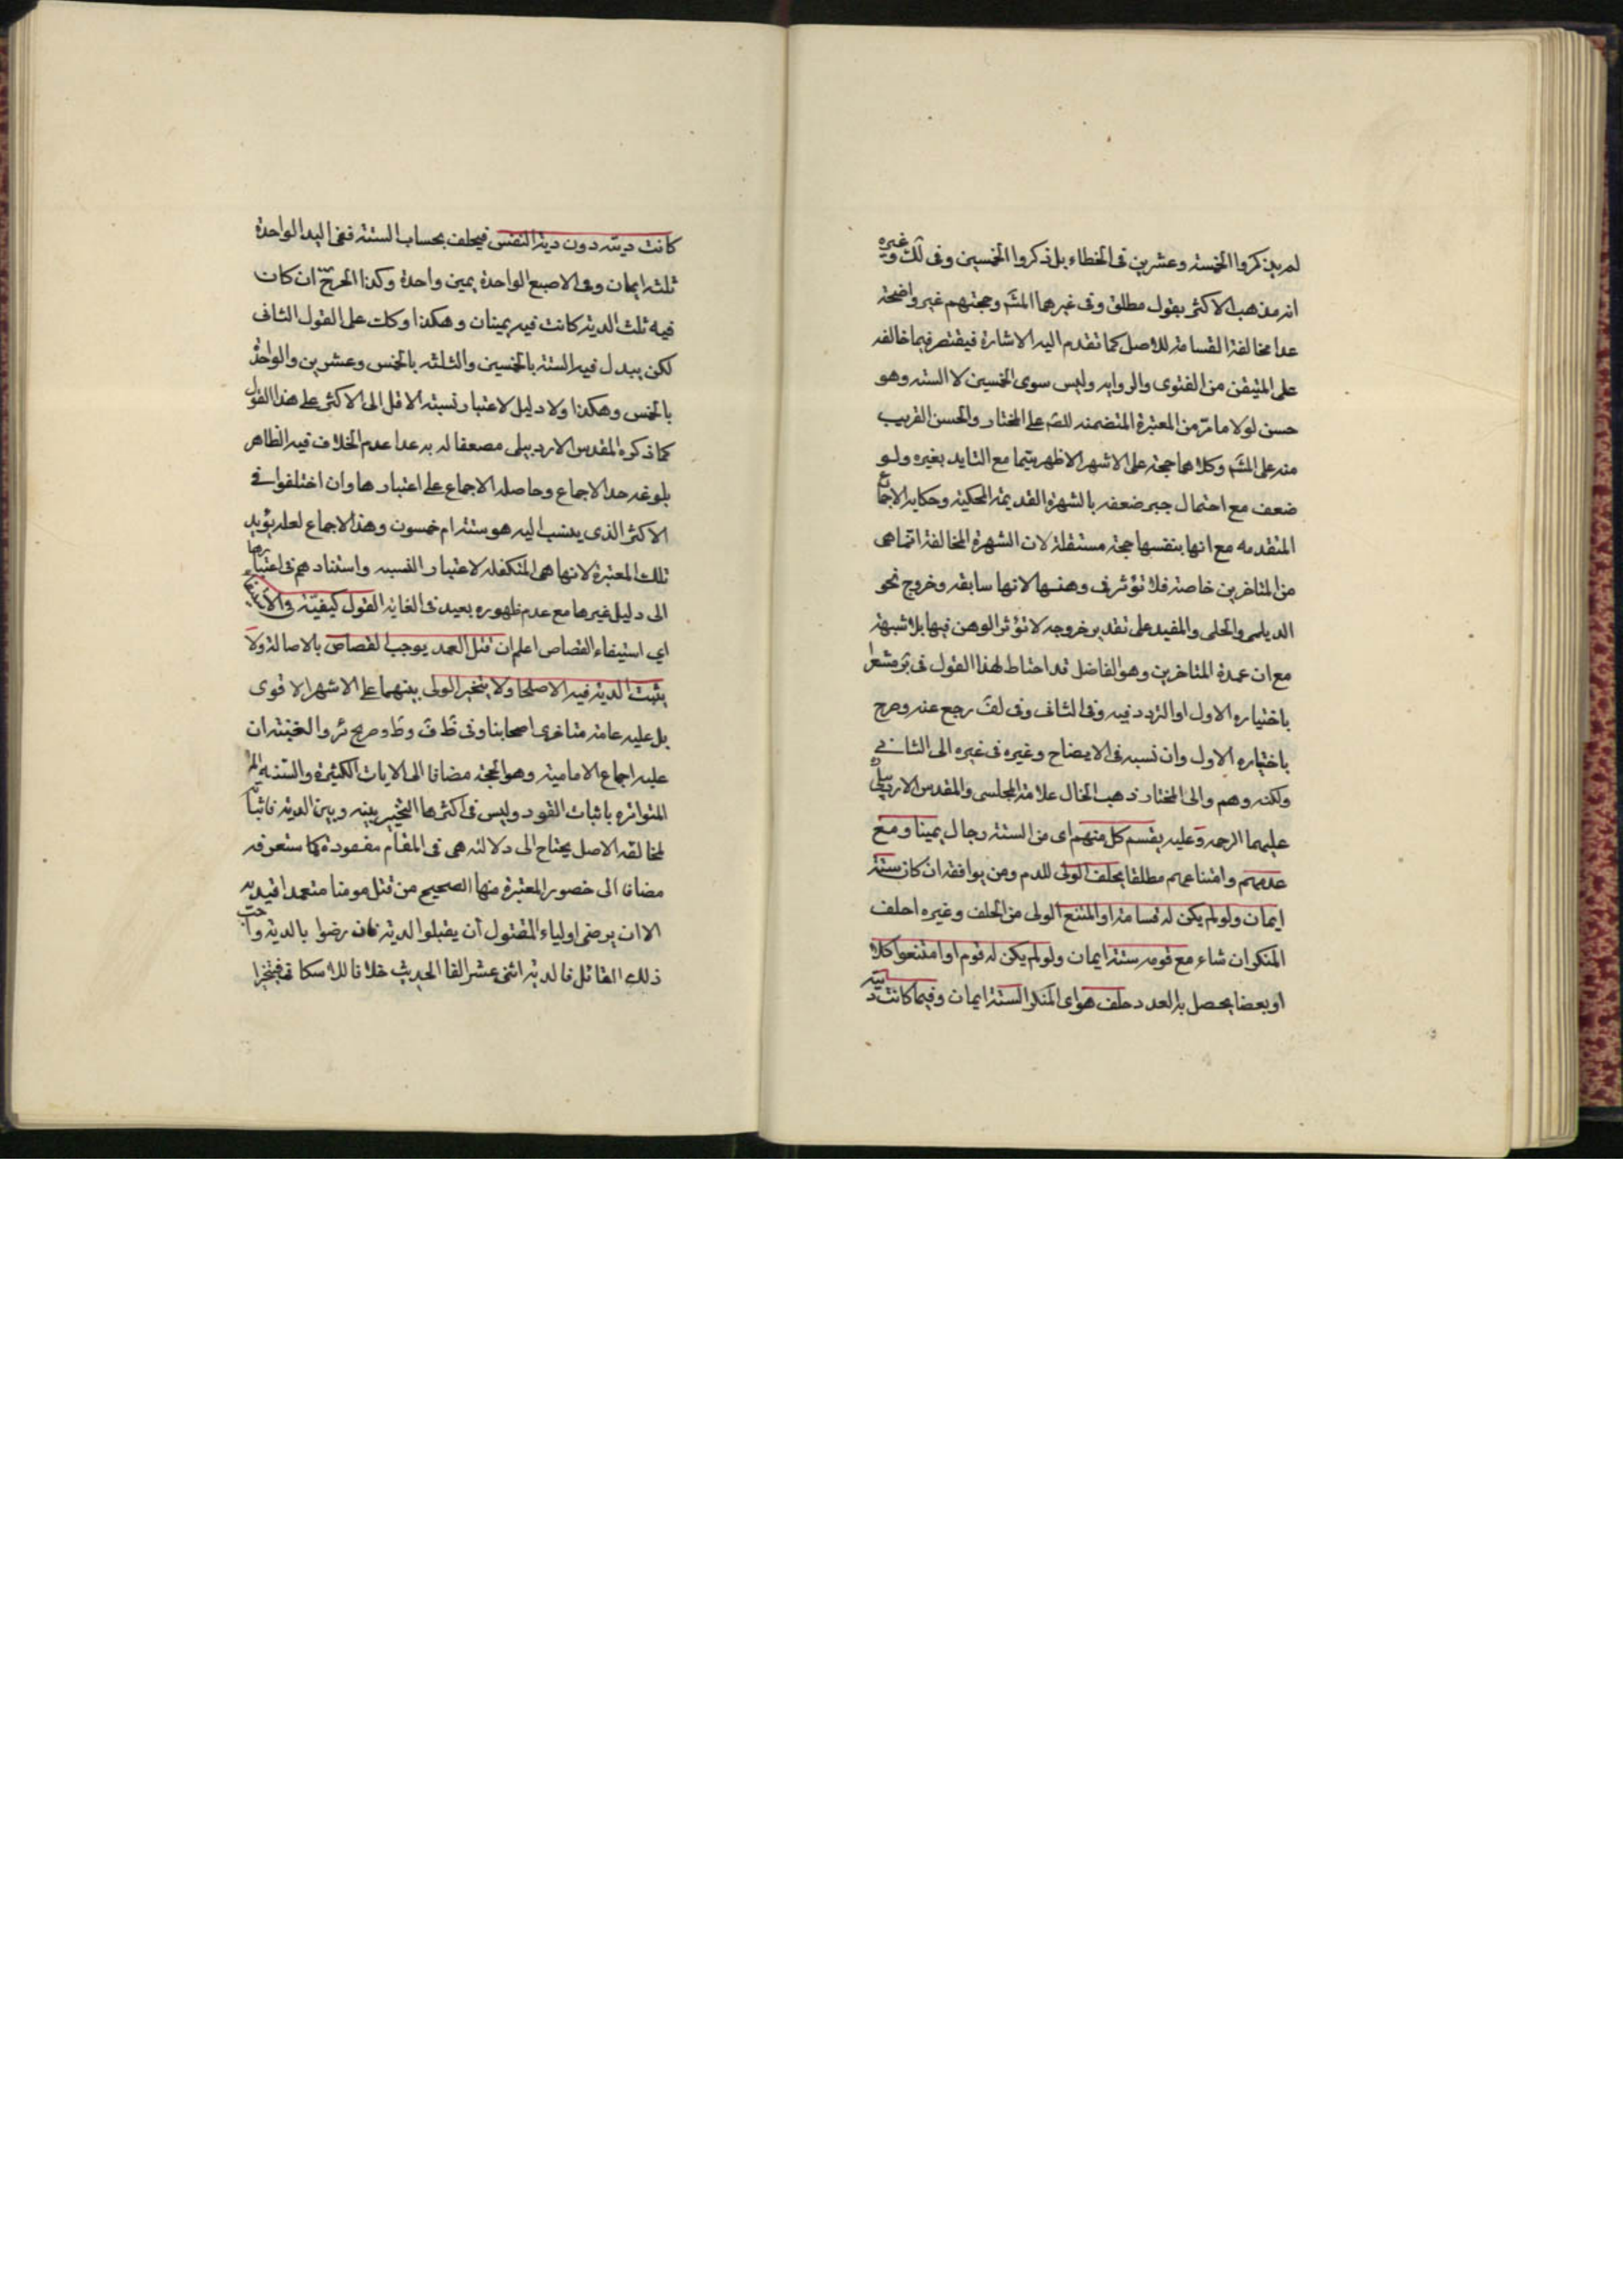 لم يذكروا الخمسة وعشرين في الخطاء بل ذكروا الخمسين وفي لك وغيره
انه مذهب الاكثر بقول مطلق وفي غيرهما المش وحجتهم غير واضحة
عدا مخالفة القسامة للاصل كما تقدم اليه الاشارة فيقتصر فيما خالفه
على المتيقن من الفتوى والروايه وليس سوى الخمسين لا السته وهو
حسن لولا ما مر من المعتبرة المتضمنه للصم على المختار والحسن القريب
منه على المش وكلاهما حجة على الاشهر الاظهر سيما مع التايد بغيره ولو
ضعف مع احتمال جبر ضعفه بالشهرة القديمة المحكية وحكايه الاجماع
المتقدمه مع انها بنفسها حجة مستقلة لان الشهرة المخالفة انما هي
من المتاخرين خاصة فلا تؤثر في وهنها لانها سابقه وخروج نحو
الديلمي والحلي والمفيد على تقدير خروجه لا تؤثر الوهن فيها بلا شبهة
مع ان عمدة المتاخرين وهو الفاضل قد احتاط لهذا القول في ير مشعرا
باختياره الاول او التردد فيه وفي الثاني وفي لف رجع عنه وصرح
باختياره الاول وان نسبه في الايضاح وغيره في غيره الى الثاني
ولكنه وهم والى المختار ذهب الخال علامة المجلسي والمقدس الاردبيلي
عليهما الرحمه وعليه يقسم كل منهم اى من الستة رجال يمينا ومع
عدمهم وامتناعهم مطلقا يحلف الولى للدم ومن يوافقه ان كان ستة
ايمان ولو لم يكن له قسامة او امتنع الولى من الحلف وغيره احلف
المنكر ان شاء مع قومه ستة ايمان ولو لم يكن له قوم او امتنعوا كلا
او بعضا يحصل به العدد حلف هو اى المنكر الستة ايمان وفيما كانت ديته
كانت ديته دون دية النفس فيحلف بحساب الستة ففي اليد الواحدة
ثلثة ايمان وفي الاصبع الواحدة يمين واحدة وكذا الجرح ان كان
فيه ثلث الدية كانت فيه يمينان وهكذا وكك على القول الثاني
لكن يبدل فيه الستة بالخمسين والثلثة بالخمس وعشرين والواحدة
بالخمس وهكذا ولا دليل لاعتبار نسبة الاقل الى الاكثر على هذا القول
كما ذكره المقدس الاردبيلى مضعفا له به عدا عدم الخلاف فيه الظاهر
بلوغه حد الاجماع وحاصله الاجماع على اعتبارها وان اختلفوا في
الاكثر الذى ينسب اليه هو ستة ام خمسون وهذا الاجماع لعله يؤيد
تلك المعتبرة لانها هي المتكفله لاعتبار النسبه واستنادهم في اعتبارها
الى دليل غيرها مع عدم ظهوره بعيد في الغاية القول كيفية الاستيفاء
اي استيفاء القصاص اعلم ان قتل العمد يوجب القصاص بالاصالة ولا
يثبت الدية فيه الا صلحا ولا يتخير الولى بينهما على الاشهر الاقوى
بل عليه عامة متاخرى اصحابنا وفي ظ ف وط وصريح ئر والغنية ان
عليه اجماع الامامية وهو الحجة مضافا الى الايات الكثيرة والسنة
المتواتره باثبات القود وليس في اكثرها التخيير بينه وبين الدية فاثباته
لمخالفه الاصل يحتاج الى دلالة هي في المقام مفقودة كما ستعرفه
مضافا الى خصوص المعتبرة منها الصحيح من قتل مومنا متعمدا اقيد به
الا ان يرضى اولياء المقتول ان يقبلوا الدية فان رضوا بالدية واحب
ذلك القاتل فالدية اثنى عشر الفا الحديث خلافا للاسكافى فيتخيرا